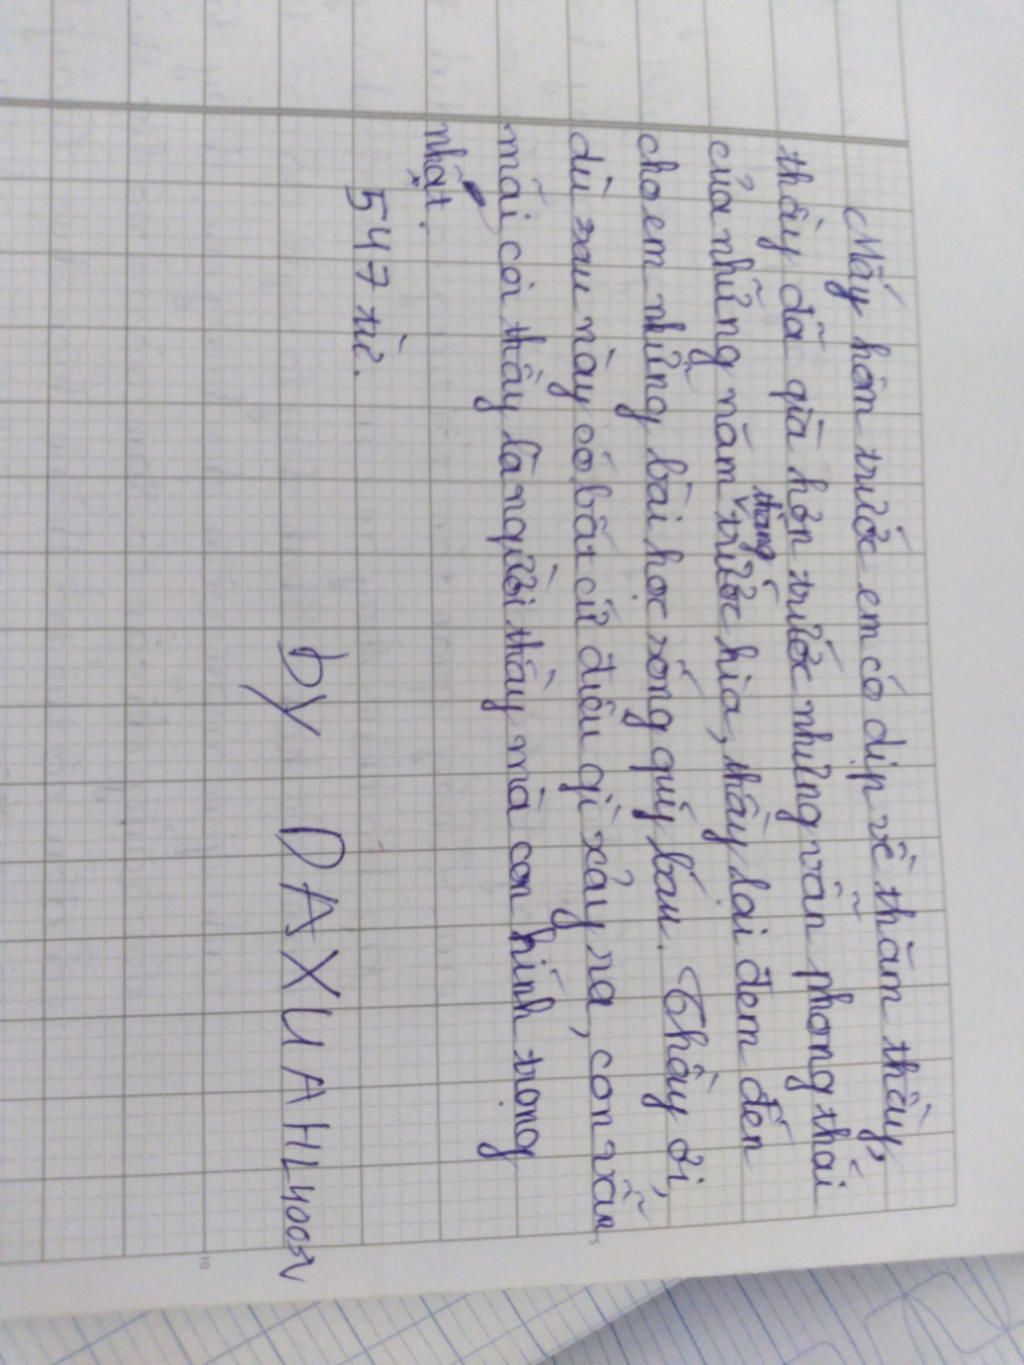 Mấy hôm trước em có dịp về thăm thầy,
thầy đã già hơn trước nhưng vẫn phong thái
của những năm tháng trước kia, thầy lại đem đến
cho em những bài học sống quý báu. Thầy ơi,
dù sau này có bất cứ điều gì xảy ra, con vẫn
mãi coi thầy là người thầy mà con kính trọng
nhất.
547 từ.
by DAXUAHL400